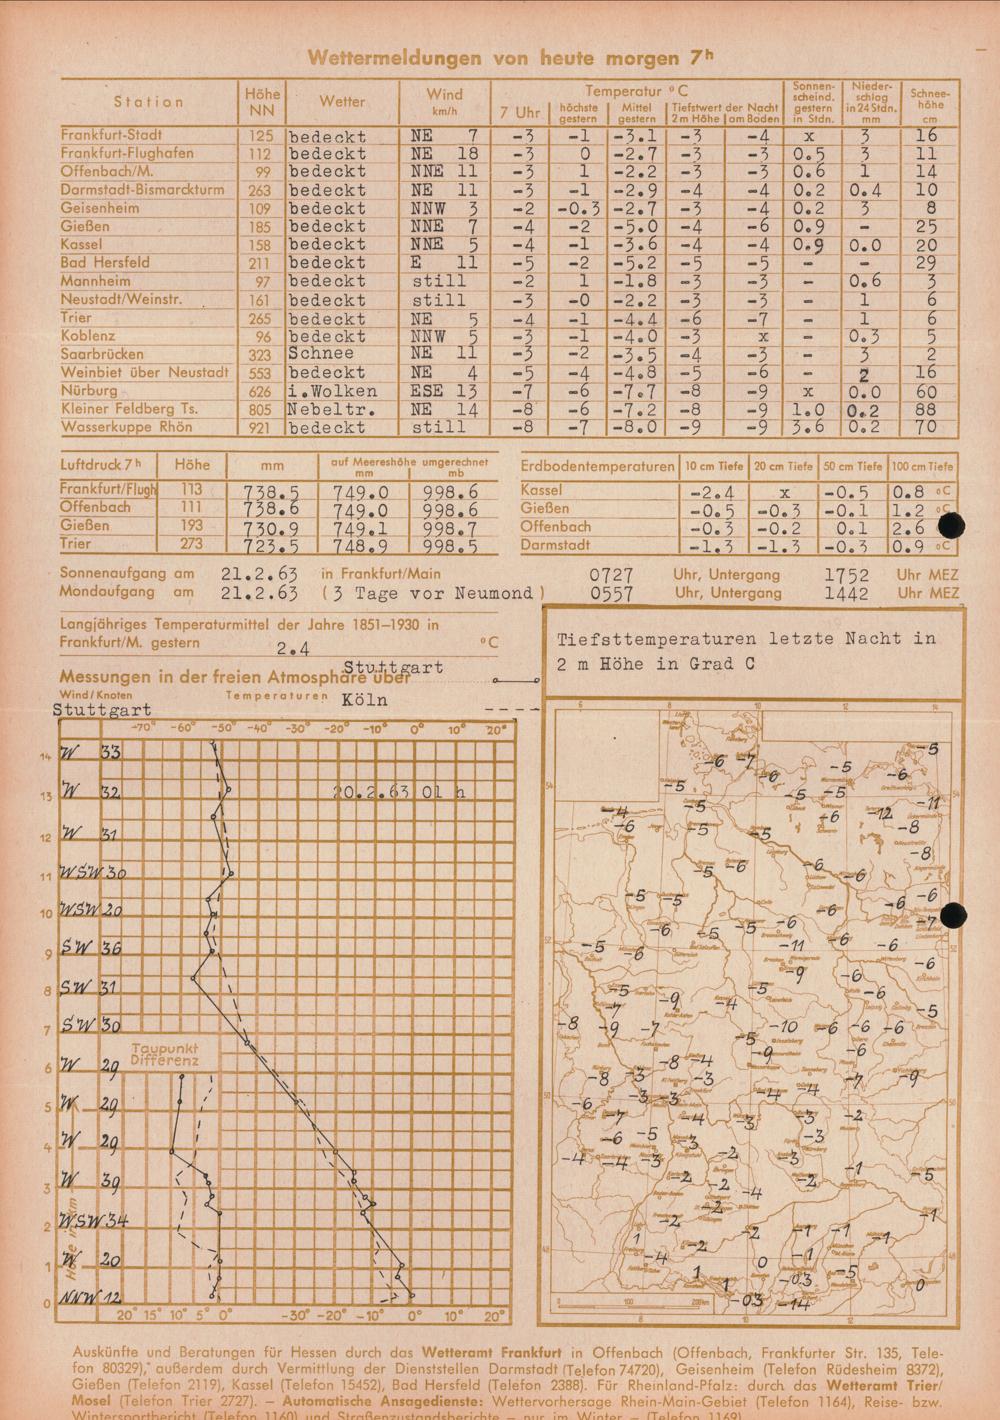 Wettermeldungen von heute morgen 7h
Station Höhe NN Wetter Wind km/h Temperatur °C Sonnenscheind. gestern in Stdn. Niederschlag in 24 Stdn. mm Schneehöhe cm
7 Uhr höchste gestern Mittel gestern Tiefstwert der Nacht 2 m Höhe am Boden
Frankfurt-Stadt 125 bedeckt NE 7 -3 -1 -3.1 -3 -4 x 3 16
Frankfurt-Flughafen 112 bedeckt NE 18 -3 0 -2.7 -3 -3 0.5 3 11
Offenbach/M. 99 bedeckt NNE 11 -3 1 -2.2 -3 -3 0.6 1 14
Darmstadt-Bismarckturm 263 bedeckt NE 11 -3 -1 -2.9 -4 -4 0.2 0.4 10
Geisenheim 109 bedeckt NNW 3 -2 -0.3 -2.7 -3 -4 0.2 3 8
Gießen 185 bedeckt NNE 7 -4 -2 -5.0 -4 -6 0.9 - 25
Kassel 158 bedeckt NNE 5 -4 -1 -3.6 -4 -4 0.9 0.0 20
Bad Hersfeld 211 bedeckt E 11 -5 -2 -5.2 -5 -5 - - 29
Mannheim 97 bedeckt still -2 1 -1.8 -3 -3 - 0.6 3
Neustadt/Weinstr. 161 bedeckt still -3 -0 -2.2 -3 -3 - 1 6
Trier 265 bedeckt NE 5 -4 -1 -4.4 -6 -7 - 1 6
Koblenz 96 bedeckt NNW 5 -3 -1 -4.0 -3 x - 0.3 5
Saarbrücken 323 Schnee NE 11 -3 -2 -3.5 -4 -3 - 3 2
Weinbiet über Neustadt 553 bedeckt NE 4 -5 -4 -4.8 -5 -6 - 2 16
Nürburg 626 i.Wolken ESE 13 -7 -6 -7.7 -8 -9 x 0.0 60
Kleiner Feldberg Ts. 805 Nebeltr. NE 14 -8 -6 -7.2 -8 -9 1.0 0.2 88
Wasserkuppe Rhön 921 bedeckt still -8 -7 -8.0 -9 -9 3.6 0.2 70
Luftdruck 7h Höhe mm auf Meereshöhe umgerechnet mm mb
Frankfurt/Flugh 113 738.5 749.0 998.6
Offenbach 111 738.6 749.0 998.6
Gießen 193 730.9 749.1 998.7
Trier 273 723.5 748.9 998.5
Erdbodentemperaturen 10 cm Tiefe 20 cm Tiefe 50 cm Tiefe 100 cm Tiefe
Kassel -2.4 x -0.5 0.8 °C
Gießen -0.5 -0.3 -0.1 1.2 °C
Offenbach -0.3 -0.2 0.1 2.6
Darmstadt -1.3 -1.3 -0.3 0.9 °C
Sonnenaufgang am 21.2.63 in Frankfurt/Main 0727 Uhr, Untergang 1752 Uhr MEZ
Mondaufgang am 21.2.63 (3 Tage vor Neumond) 0557 Uhr, Untergang 1442 Uhr MEZ
Langjähriges Temperaturmittel der Jahre 1851–1930 in
Frankfurt/M. gestern 2.4 °C
Messungen in der freien Atmosphäre über Stuttgart
Wind/Knoten Temperaturen Köln
Stuttgart
-70° -60° -50° -40° -30° -20° -10° 0° 10° 20°
14 W 33
13 W 32 20.2.63 01 h
12 W 31
11 WSW 30
10 WSW 20
9 SW 36
8 SW 31
7 SW 30
Taupunkt
Differenz
6 W 29
5 W 29
4 W 29
3 W 39
2 WSW 34
1 W 20
0 NNW 12
Höhe in km
20° 15° 10° 5° 0° -30° -20° -10° 0° 10° 20°
Tiefsttemperaturen letzte Nacht in
2 m Höhe in Grad C
6 8 10 12 14
-5
-6 -7 -6 -5 -6
-5 -5 -5 -11
-4 -5 -6 -12 -8
-6 -5 -5 -8
-5 -6 -6 -6
-5 -5 -6 -6 -6
-6 -5 -6 -7
-5 -6 -11 -6 -6 -6
-9 -6
-5 -9 -4 -5 -6 -5
-7
-8 -9 -7 -5 -10 -6 -6 -6
-9 -6
-8 -4
-8 -3 -3 -4 -4 -7 -9
-6 -3 -3
-7 -4 -3 -3 -2
-6 -5 -3 -3
-4 -4 -3 -2 -3 -1
-2 -2 -4 -2 -5
-2 -2 -1
1 -2 -2 -1 -1 -1
-4 0 -1
1 1 -03 -5 0
-03 -14
0 100 200 km
Auskünfte und Beratungen für Hessen durch das Wetteramt Frankfurt in Offenbach (Offenbach, Frankfurter Str. 135, Tele-
fon 80329), außerdem durch Vermittlung der Dienststellen Darmstadt (Telefon 74720), Geisenheim (Telefon Rüdesheim 8372),
Gießen (Telefon 2119), Kassel (Telefon 15452), Bad Hersfeld (Telefon 2388). Für Rheinland-Pfalz: durch das Wetteramt Trier/
Mosel (Telefon Trier 2727). – Automatische Ansagedienste: Wettervorhersage Rhein-Main-Gebiet (Telefon 1164), Reise- bzw.
Wintersportbericht (Telefon 1160) und Straßenzustandsberichte – nur im Winter – (Telefon 1169).